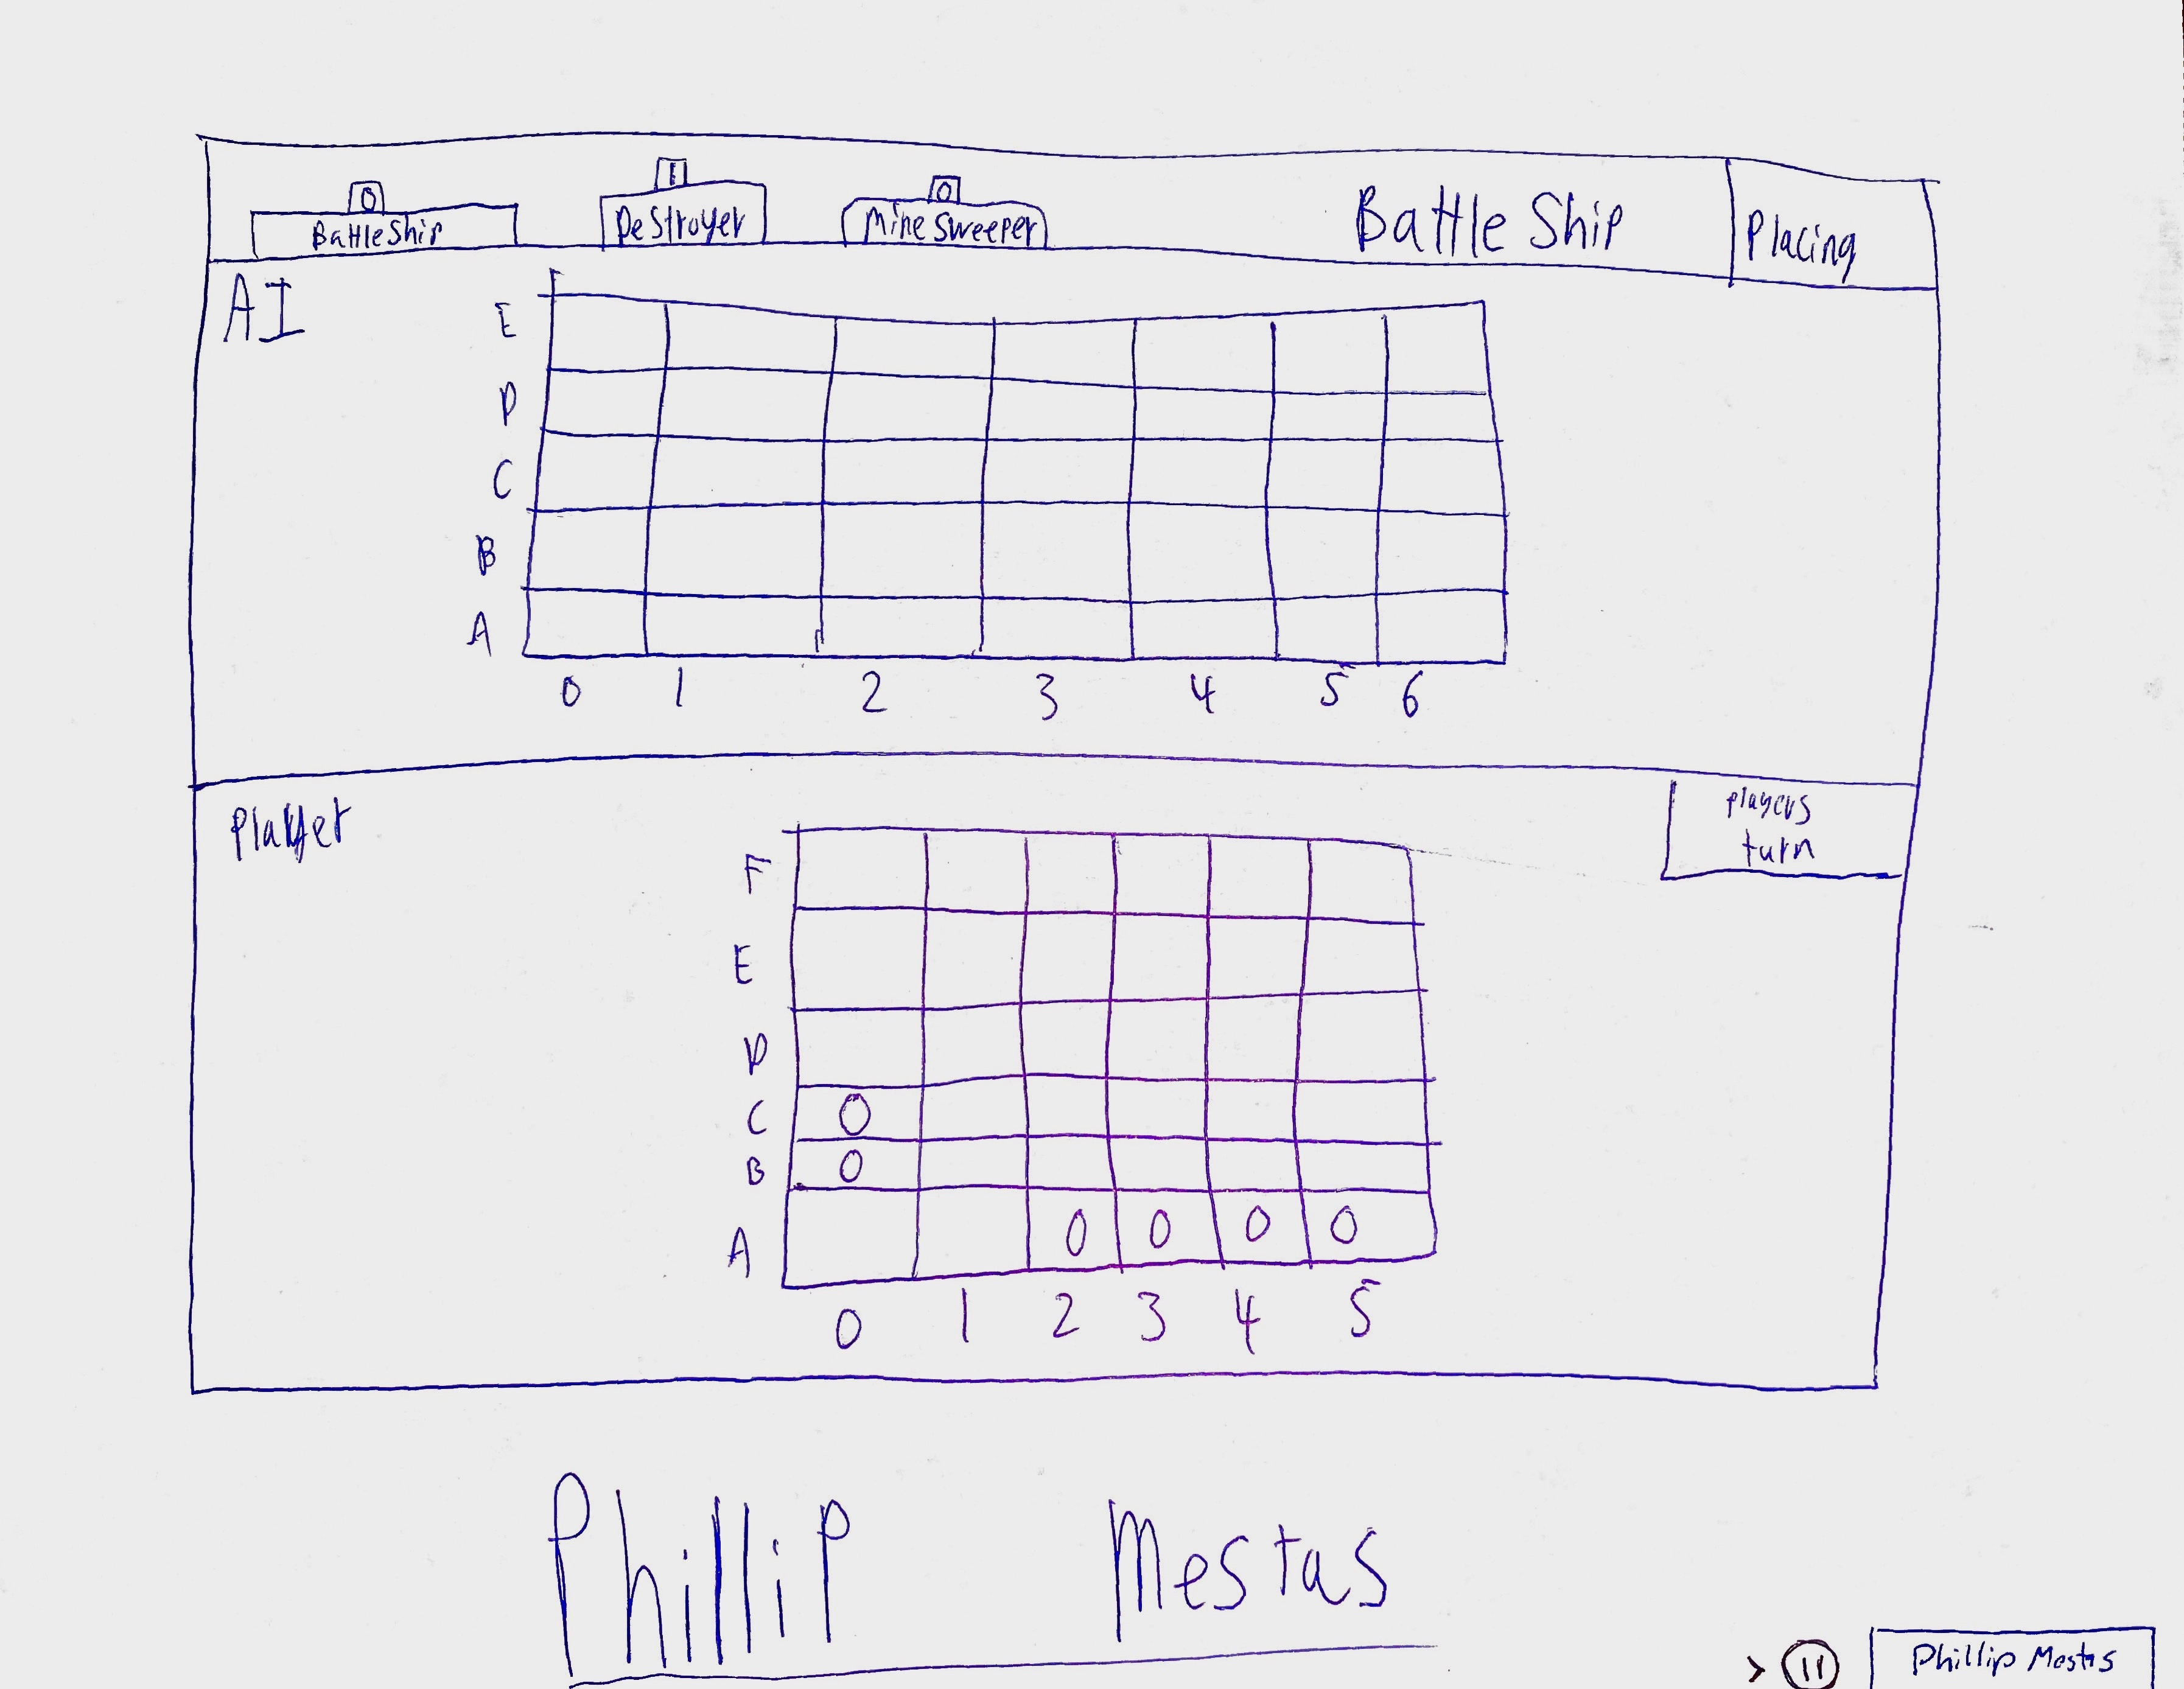 0 1 0
BattleShip DeStroyer Mine Sweeper Battle Ship Placing
AI
E
D
C
B
A
0 1 2 3 4 5 6
Player
players
turn
F
E
D
C 0
B 0
A 0 0 0 0
0 1 2 3 4 5
Phillip Mestas
> 11 Phillip Mestas